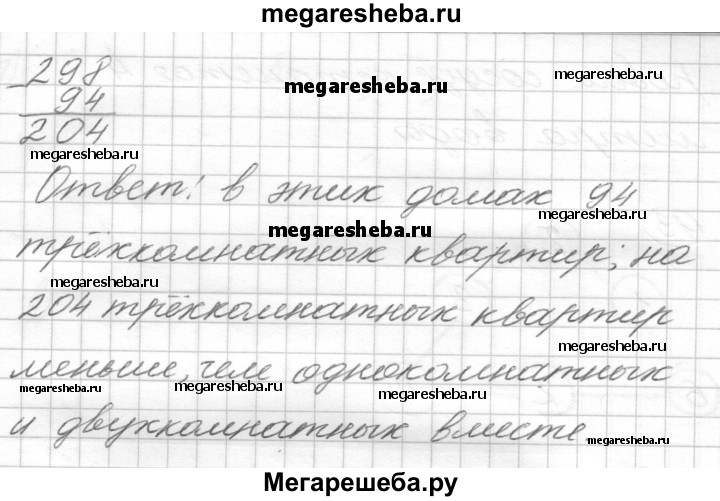 megaresheba.ru
298
megaresheba.ru
94
204
megaresheba.ru
Ответ: в этих домах 94
megaresheba.ru
трёхкомнатных квартир; на
megaresheba.ru
204 трёхкомнатных квартир
megaresheba.ru
меньше, чем однокомнатных
megaresheba.ru
megaresheba.ru
megaresheba.ru
и двухкомнатных вместе.
megaresheba.ru
Мегарешеба.ру